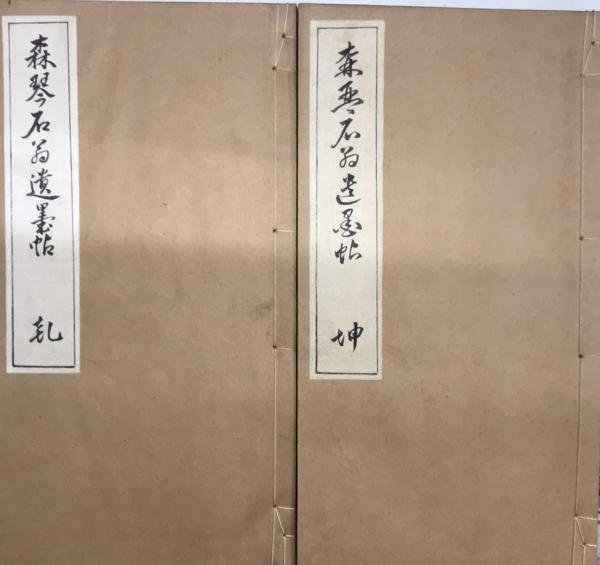 森琴石翁遺墨帖 乾
森琴石翁遺墨帖 坤